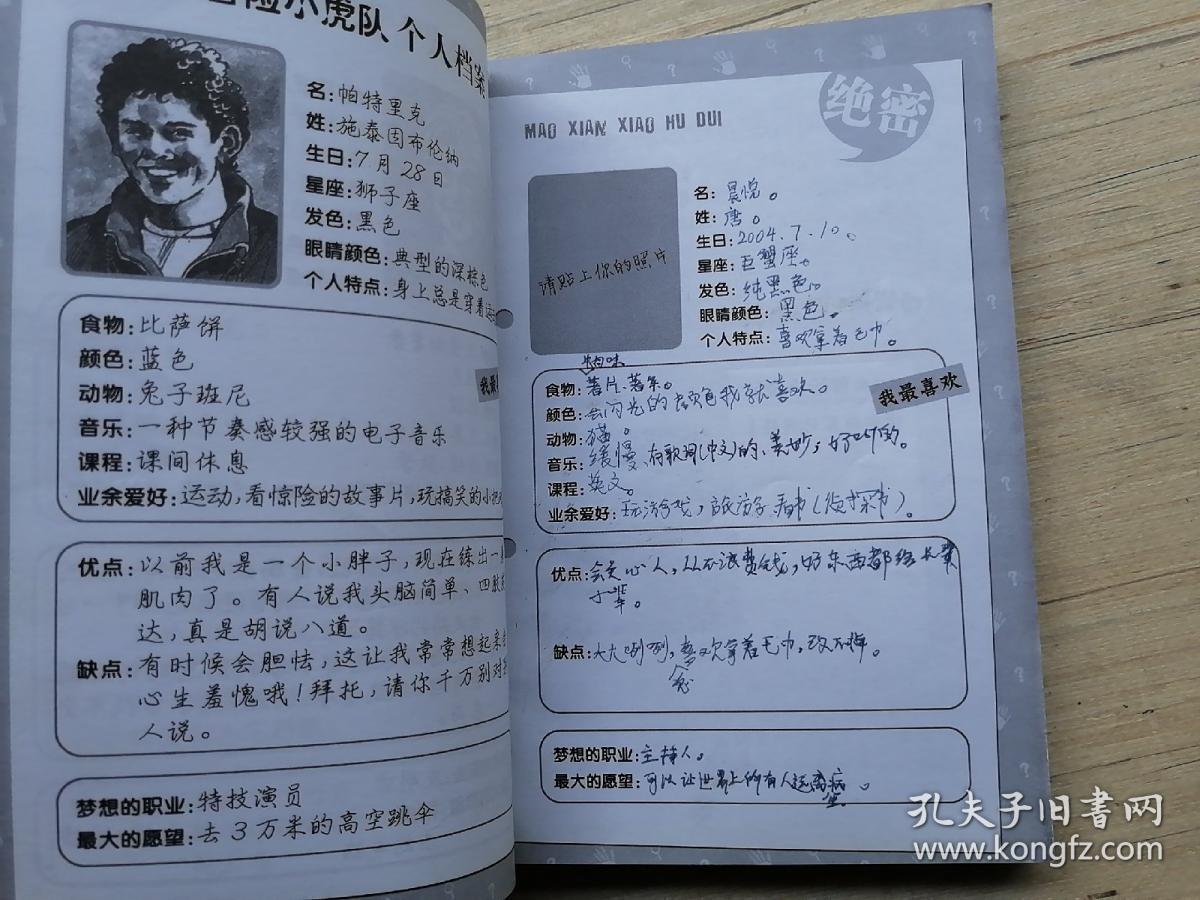 冒险小虎队个人档案
名:帕特里克
姓:施泰因布伦纳
生日:7月28日
星座:狮子座
发色:黑色
眼睛颜色:典型的深棕色
个人特点:身上总是穿着运
食物:比萨饼
颜色:蓝色
动物:兔子班尼
音乐:一种节奏感较强的电子音乐
课程:课间休息
业余爱好:运动,看惊险的故事片,玩搞笑的小把
我最
优点:以前我是一个小胖子,现在练出一
肌肉了。有人说我头脑简单、四肢
达,真是胡说八道。
缺点:有时候会胆怯,这让我常常想起来
心生羞愧哦!拜托,请你千万别对
人说。
梦想的职业:特技演员
最大的愿望:去3万米的高空跳伞
MAO XIAN XIAO HU DUI
绝密
请贴上你的照片
名:晨悦。
姓:唐。
生日:2004.7.10。
星座:巨蟹座。
发色:纯黑色。
眼睛颜色:黑色。
个人特点:喜欢拿着毛巾。
我最喜欢
食物:薯片.薯条。
颜色:会闪光的颜色我就喜欢。
动物:猫。
音乐:缓慢、有歌词(中文)的、美妙,好听的。
课程:英文。
业余爱好:玩游戏,旅游,看书(侦探书)。
优点:会关心人,从不浪费钱,好东西都给长辈
缺点:大大咧咧,喜欢拿着毛巾,改不掉。
梦想的职业:主持人。
最大的愿望:可以让世界上所有人远离病
孔夫子旧书网
www.kongfz.com